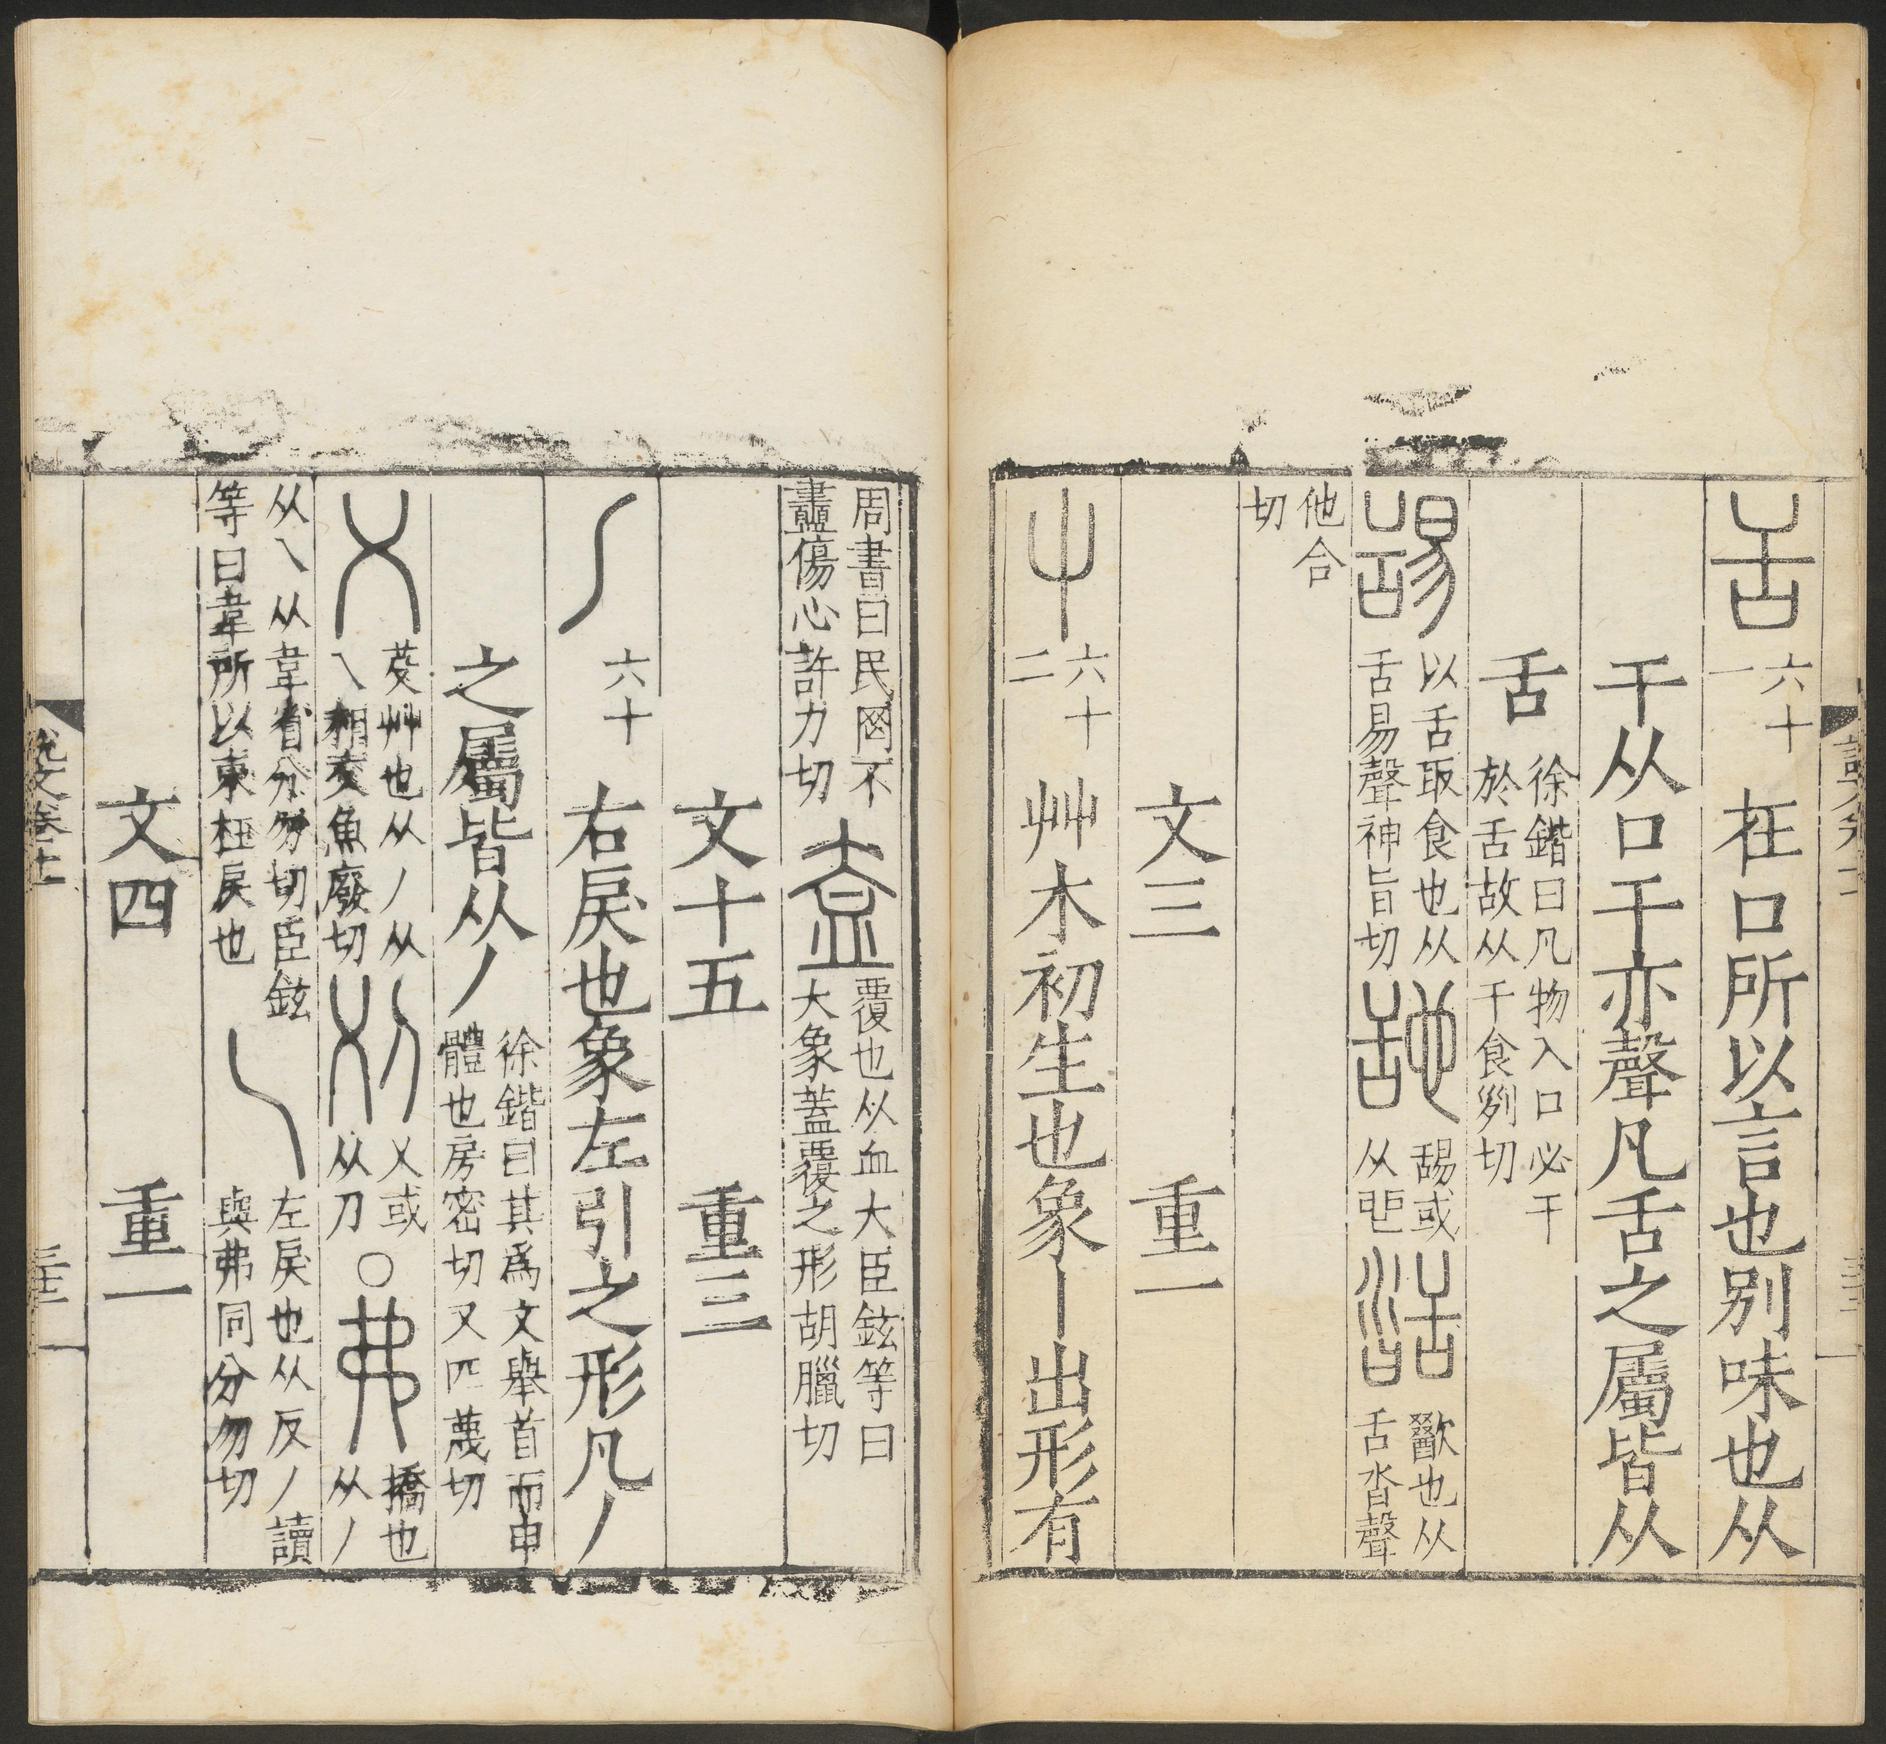 舌 六十一 在口所以言也別味也从
干从口干亦聲凡舌之屬皆从
舌 徐鍇曰凡物入口必干
於舌故从干食列切
𦧇 以舌取食也从
舌易聲神旨切
舓或
从也
𦧥 歠也从
舌沓聲
他合
切
文三 重一
屮 六十二 艸木初生也象丨出形有
周書曰民罔不
𧗕傷心許力切
盇 覆也从血大臣鉉等曰
大象蓋覆之形胡臘切
文十五 重三
丿 六十 右戾也象左引之形凡丿
之屬皆从丿 徐鍇曰其爲文舉首而申
體也房密切又匹蔑切
乂 芟艸也从丿从
乀相交魚廢切
刈 乂或
从刀
○弗 撟也
从丿
从乀从韋省分勿切臣鉉
等曰韋所以束枉戾也
乀 左戾也从反丿讀
與弗同分勿切
文四 重一